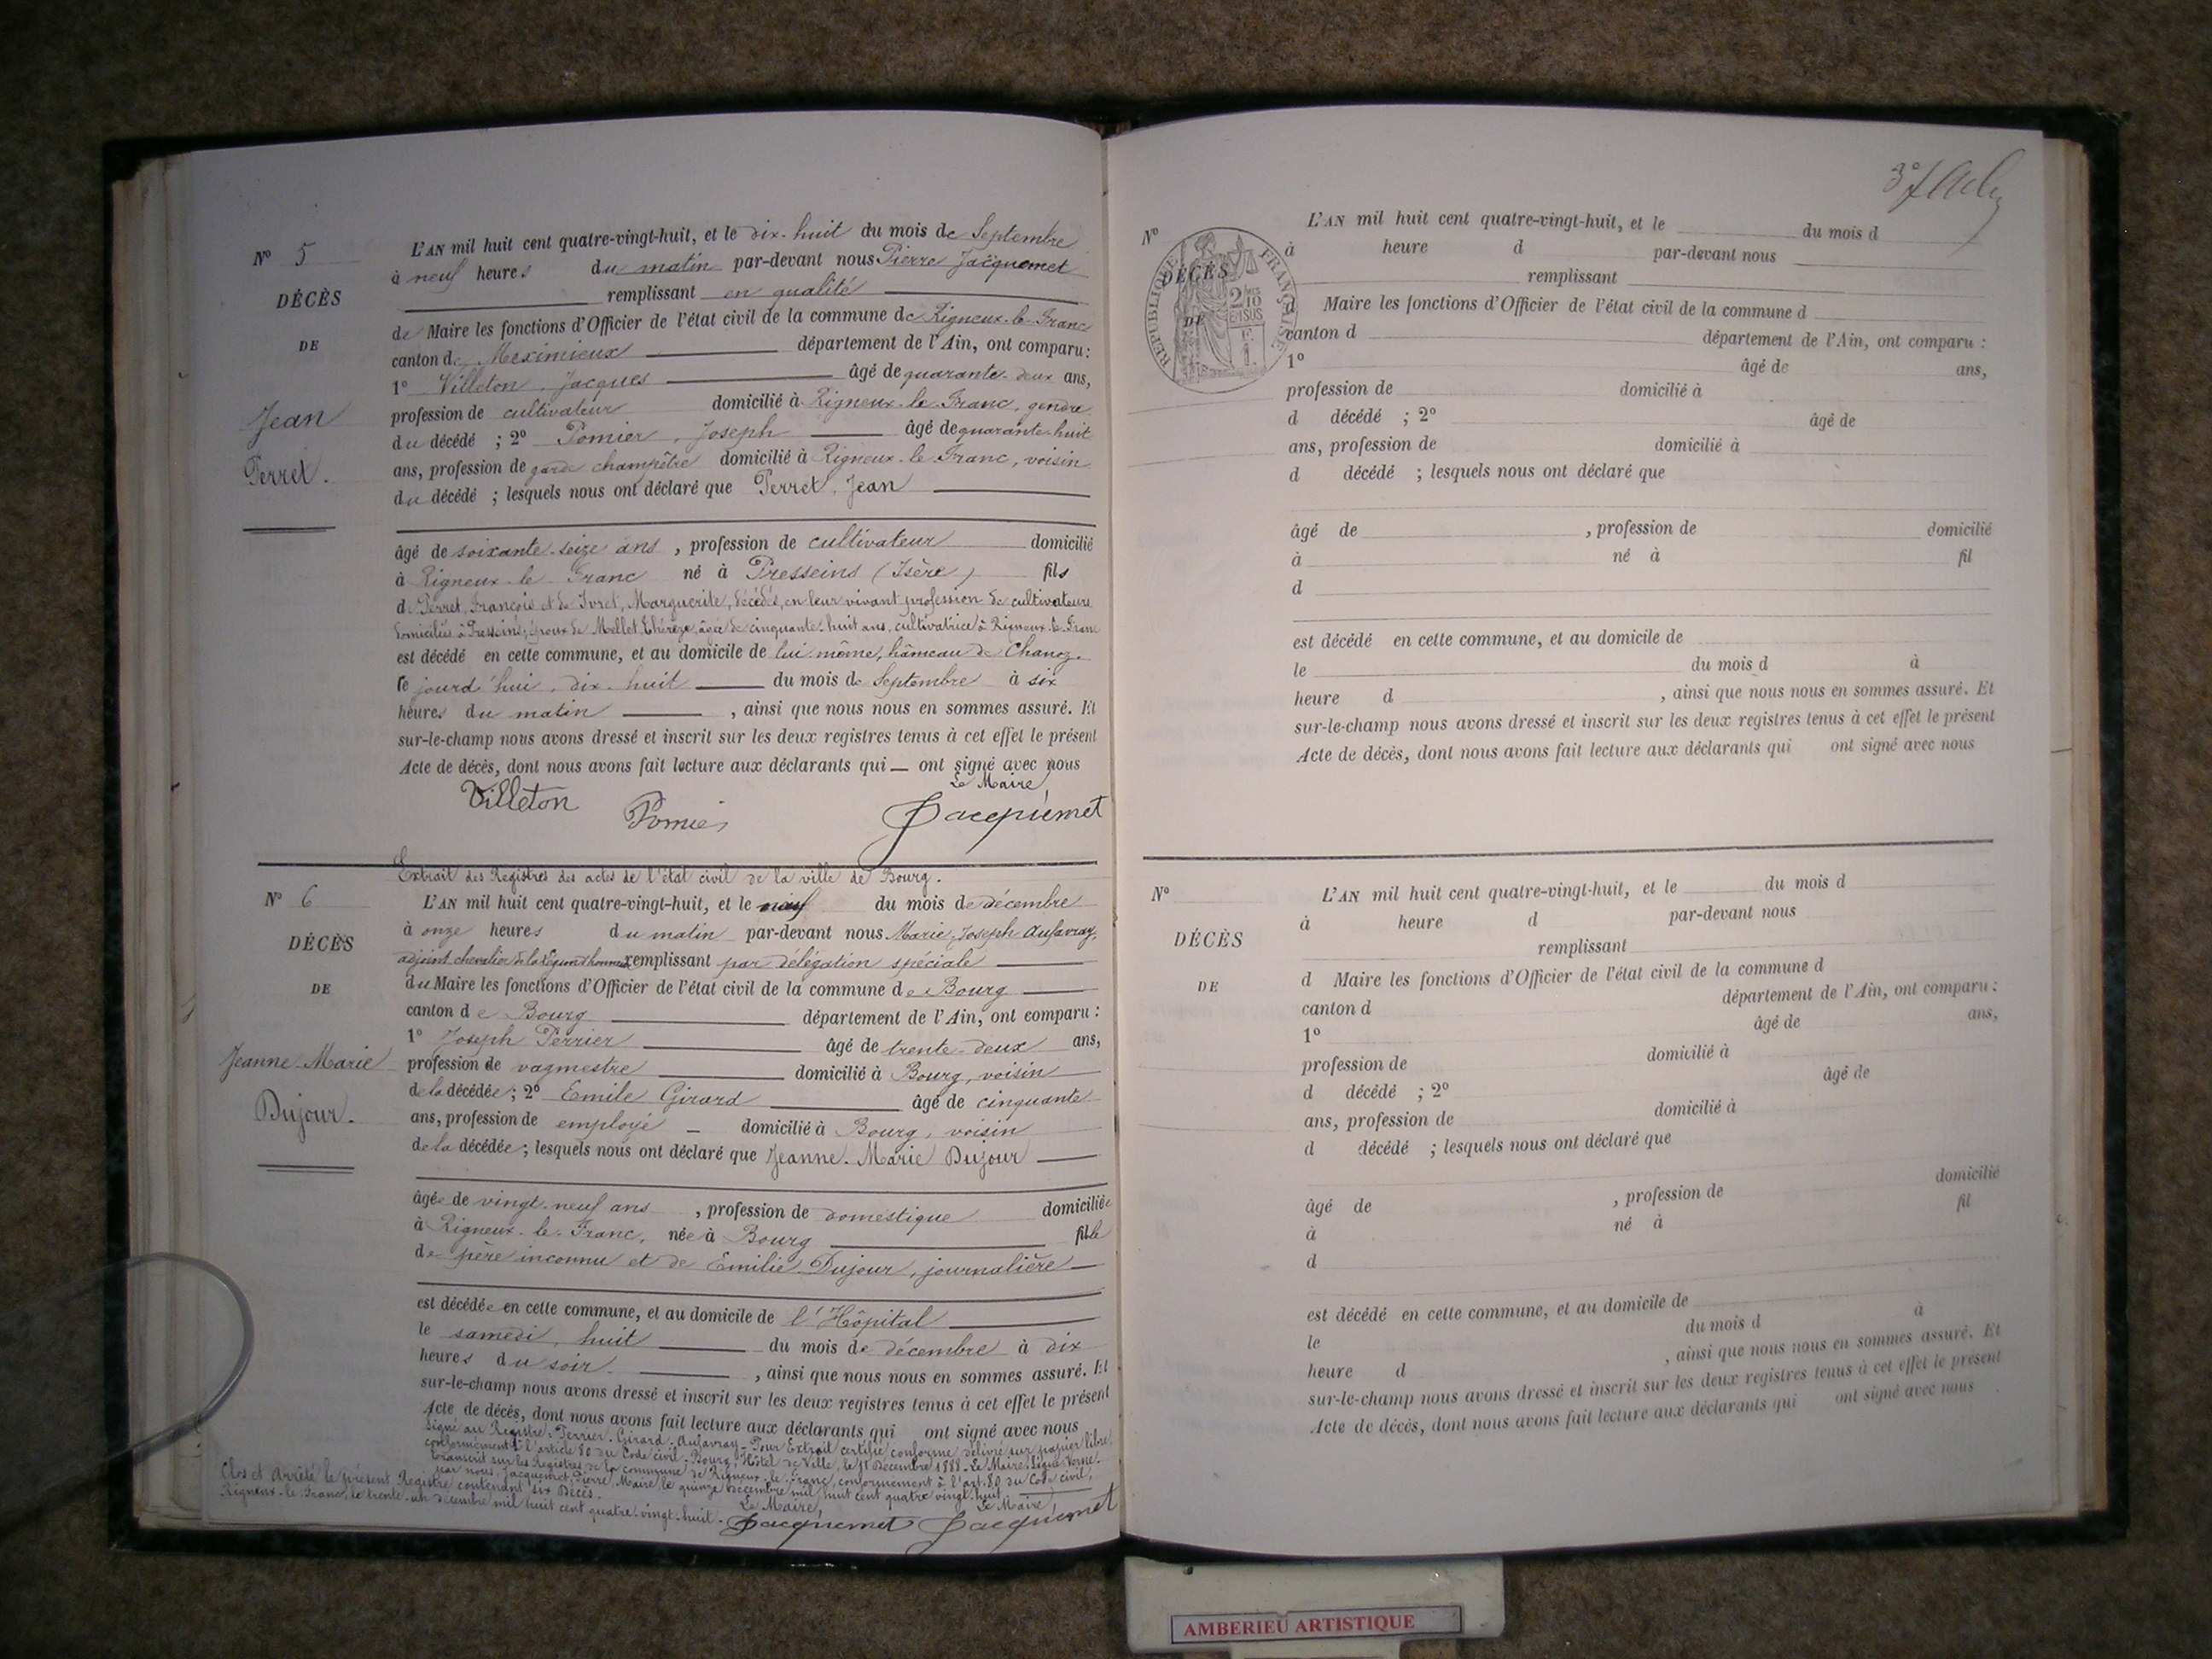 N° 5
DÉCÈS
DE
Jean
Perret.
L'AN mil huit cent quatre-vingt-huit, et le dix-huit du mois de Septembre
à neuf heures du matin par-devant nous Pierre Jacquemet
remplissant en qualité
de Maire les fonctions d'Officier de l'état civil de la commune de Rigneux-le-Franc
canton de Meximieux département de l'Ain, ont comparu :
1° Villeton, Jacques âgé de quarante-deux ans,
profession de cultivateur domicilié à Rigneux-le-Franc, gendre
du décédé ; 2° Pomier, Joseph âgé de quarante-huit
ans, profession de garde champêtre domicilié à Rigneux-le-Franc, voisin
du décédé ; lesquels nous ont déclaré que Perret, Jean
âgé de soixante-seize ans , profession de cultivateur domicilié
à Rigneux-le-Franc né à Presseins (Isère) fils
de Perret, François et de Ivret, Marguerite, décédés, en leur vivant profession de cultivateurs
domiciliés à Presseins, époux de Mollet, Thérèze, âgée de cinquante-huit ans, cultivatrice à Rigneux-le-Franc
est décédé en cette commune, et au domicile de lui-même, hâmeau de Chanoz.
le jourd'hui, dix-huit du mois de Septembre à six
heures du matin , ainsi que nous nous en sommes assuré. Et
sur-le-champ nous avons dressé et inscrit sur les deux registres tenus à cet effet le présent
Acte de décès, dont nous avons fait lecture aux déclarants qui — ont signé avec nous
Le Maire
Villeton Pomier Jacquemet
Extrait des Registres des actes de l'état civil de la ville de Bourg.
N° 6
DÉCÈS
DE
Jeanne-Marie
Dujour.
L'AN mil huit cent quatre-vingt-huit, et le neuf du mois de décembre
à onze heures du matin par-devant nous Marie, Joseph Aufavray,
adjoint chevalier de la Légion d'honneur remplissant par délégation spéciale
du Maire les fonctions d'Officier de l'état civil de la commune de Bourg
canton de Bourg département de l'Ain, ont comparu :
1° Joseph Perrier âgé de trente-deux ans,
profession de vagmestre domicilié à Bourg, voisin
de la décédée ; 2° Emile Girard âgé de cinquante
ans, profession de employé — domicilié à Bourg, voisin
de la décédée ; lesquels nous ont déclaré que Jeanne-Marie Dujour
âgée de vingt-neuf ans , profession de domestique domiciliée
à Rigneux-le-Franc, née à Bourg fille
de père inconnu et de Emilie Dujour, journalière
est décédée en cette commune, et au domicile de l'Hôpital
le samedi, huit du mois de décembre à dix
heures du soir , ainsi que nous nous en sommes assuré. Et
sur-le-champ nous avons dressé et inscrit sur les deux registres tenus à cet effet le présent
Acte de décès, dont nous avons fait lecture aux déclarants qui ont signé avec nous
Signé au Registre : Perrier. Girard. Aufavray. Pour Extrait certifié conforme délivré sur papier libre
conformément à l'article 80 du Code civil. Bourg, Hôtel de Ville, le 11 décembre 1888. Le Maire, signé
transcrit sur les Registres de la commune de Rigneux-le-Franc, conformément à l'art. 80 du Code civil,
par nous, Jacquemet, Pierre, Maire le quinze décembre mil huit cent quatre-vingt-huit.
Le Maire
Jacquemet
Clos et arrêté le présent Registre contenant six Décès.
Rigneux-le-Franc, le trente-un décembre mil huit cent quatre-vingt-huit.
Le Maire,
Jacquemet
N°
DÉCÈS
DE
RÉPUBLIQUE FRANÇAISE
2/10 EN SUS
L'AN mil huit cent quatre-vingt-huit, et le du mois d
à heure d par-devant nous
remplissant
d Maire les fonctions d'Officier de l'état civil de la commune d
canton d département de l'Ain, ont comparu :
1° âgé de ans,
profession de domicilié à
d décédé ; 2° âgé de
ans, profession de domicilié à
d décédé ; lesquels nous ont déclaré que
âgé de , profession de domicilié
à né à fil
d
est décédé en cette commune, et au domicile de
le du mois d à
heure d , ainsi que nous nous en sommes assuré. Et
sur-le-champ nous avons dressé et inscrit sur les deux registres tenus à cet effet le présent
Acte de décès, dont nous avons fait lecture aux déclarants qui ont signé avec nous
N°
DÉCÈS
DE
L'AN mil huit cent quatre-vingt-huit, et le du mois d
à heure d par-devant nous
remplissant
d Maire les fonctions d'Officier de l'état civil de la commune d
canton d département de l'Ain, ont comparu :
1° âgé de ans,
profession de domicilié à
d décédé ; 2° âgé de
ans, profession de domicilié à
d décédé ; lesquels nous ont déclaré que
âgé de , profession de domicilié
à né à fil
d
est décédé en cette commune, et au domicile de
le du mois d à
heure d , ainsi que nous nous en sommes assuré. Et
sur-le-champ nous avons dressé et inscrit sur les deux registres tenus à cet effet le présent
Acte de décès, dont nous avons fait lecture aux déclarants qui ont signé avec nous
AMBERIEU ARTISTIQUE